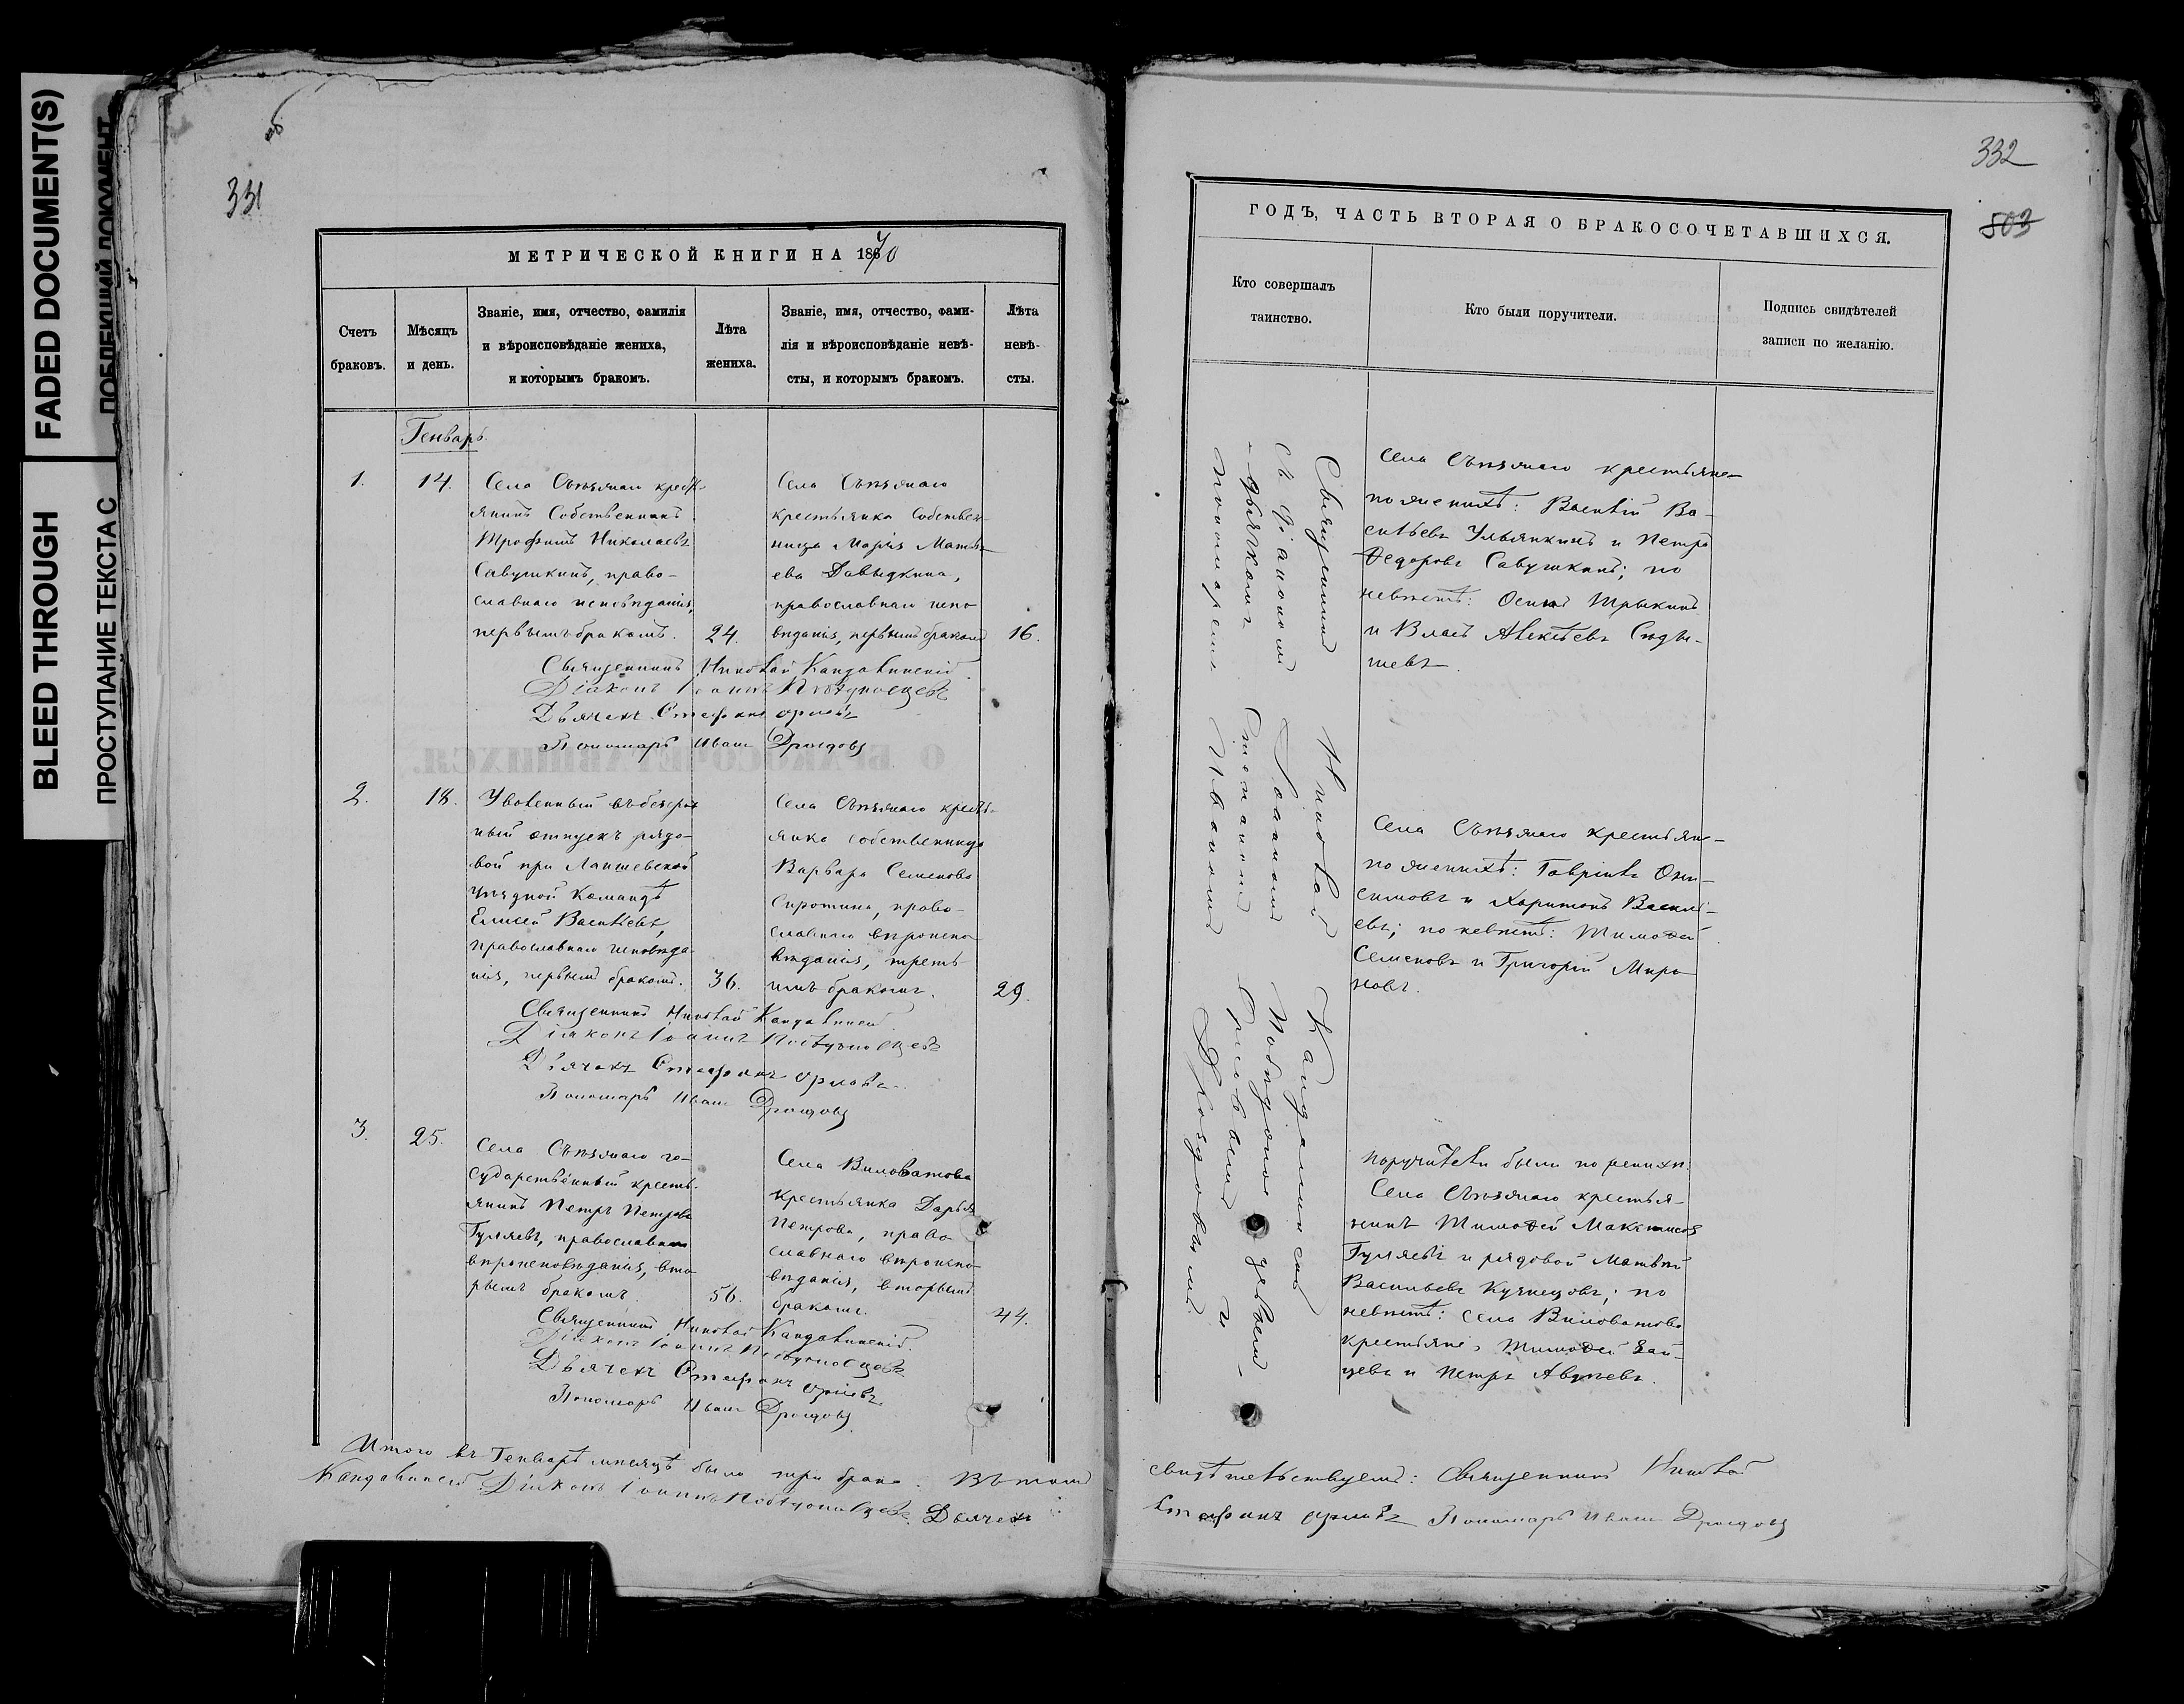 FADED DOCUMENT(S)
BLEED THROUGH
ПРОСТУПАНИЕ ТЕКСТА С
331
МЕТРИЧЕСКОЙ КНИГИ НА 1870
Счетъ браковъ.
Мѣсяцъ и день.
Званіе, имя, отчество, фамилія
и вѣроисповѣданіе жениха,
и которымъ бракомъ.
Лѣта жениха.
Званіе, имя, отчество, фами-
лія и вѣроисповѣданіе невѣ-
сты, и которымъ бракомъ.
Лѣта невѣ-
сты.
Генварь
1.
14.
Села Съѣзжаго крест-
янинъ Собственникъ
Трофимъ Николаевъ
Савушкинъ, право-
славнаго исповѣданія,
первымъ бракомъ.
24.
Села Съѣзжаго
крестьянка Собствен-
ница Марія Матвѣ-
ева Давыдкина,
православнаго испо-
вѣданія, первымъ бракомъ
16.
Священникъ Николай
Діаконъ Іоаннъ Побѣдоносцевъ
Дьячекъ Стефанъ Орловъ
Пономарь Иванъ Дроздовъ
2.
18.
Уволенный въ безсроч-
ный отпускъ рядо-
вой при Лаишевской
уѣздной Командѣ
Елисей Васильевъ,
православнаго исповѣда-
нія, первымъ бракомъ.
36.
Села Съѣзжаго кресть-
янка собственница
Варвара Семенова
Сиротина, право-
славнаго вѣроиспо-
вѣданія, треть-
имъ бракомъ.
29.
Священникъ Николай
Діаконъ Іоаннъ Побѣдоносцевъ
Дьячекъ Стефанъ Орловъ
Пономарь Иванъ Дроздовъ
3.
25.
Села Съѣзжаго го-
сударственный кресть-
янинъ Петръ Петровъ
Гуляевъ, православнаго
вѣроисповѣданія, вто-
рымъ бракомъ.
56.
Села Виловатова
крестьянка Дарья
Петрова, право-
славнаго вѣроиспо-
вѣданія, вторымъ
бракомъ.
44.
Священникъ Николай
Діаконъ Іоаннъ Побѣдоносцевъ
Дьячекъ Стефанъ Орловъ
Пономарь Иванъ Дроздовъ
Итого въ Генварѣ мѣсяцѣ было три брака. Въ томъ
Діаконъ Іоаннъ Побѣдоносцевъ Дьячекъ
332
503
ГОДЪ, ЧАСТЬ ВТОРАЯ О БРАКОСОЧЕТАВШИХСЯ.
Кто совершалъ
таинство.
Кто были поручители.
Подпись свидѣтелей
записи по желанію.
Священникъ Николай
съ діакономъ Іоанномъ Побѣдонос
дьячкомъ Стефаномъ Орловымъ и
пономаремъ Иваномъ Дроздовымъ.
Села Съѣзжаго крестьяне
по женихѣ: Василій Ва-
сильевъ Ульянкинъ и Петръ
Ѳедоровъ Савушкинъ; по
невѣстѣ: Осипъ Трыкинъ
и Власъ Алексѣевъ
Села Съѣзжаго крестьяне
по женихѣ: Гавріилъ Они-
симовъ и Харитонъ Василь-
евъ; по невѣстѣ: Тимоѳей
Семеновъ и Григорій Миро-
новъ.
поручители были по женихѣ
Села Съѣзжаго крестья-
нинъ Тимоѳей Максимовъ
Гуляевъ и рядовой Матвѣй
Васильевъ Кузнецовъ; по
невѣстѣ: села Виловатова
крестьяне, Тимоѳей Зай-
цевъ и Петръ Авдѣевъ.
свидѣтельствуемъ: Священникъ Николай
Стефанъ Орловъ Пономарь Иванъ Дроздовъ